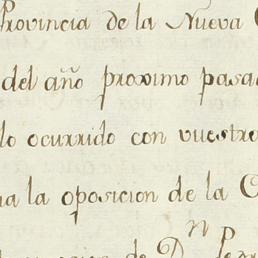 Provincia de la Nueva
del año proximo pasa
lo ocurrido con vuestro
la oposicion de la
de Dn